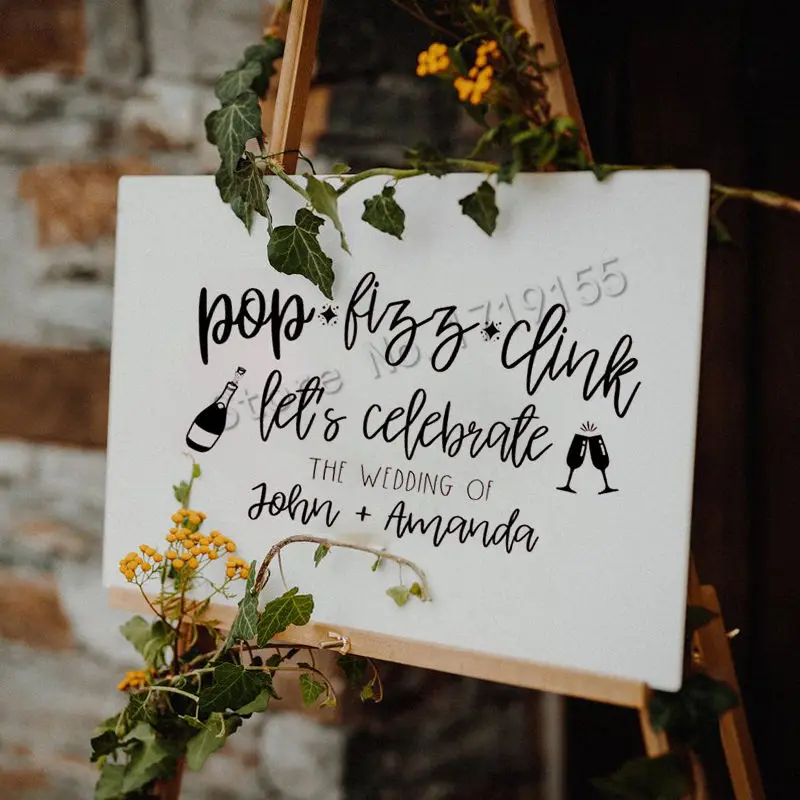 pop fizz clink
let's celebrate
THE WEDDING OF
John + Amanda
Store No. 1719155